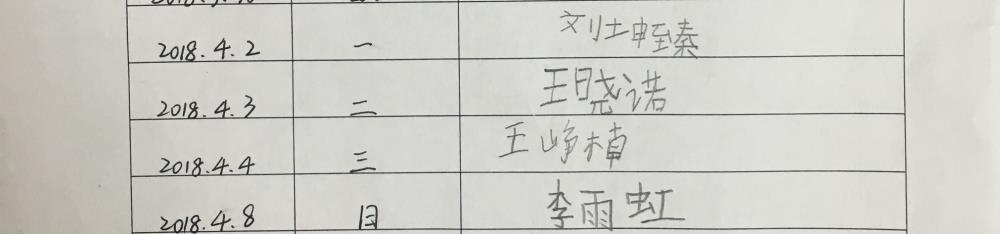 2018.4.2 一 刘士臻
2018.4.3 二 王晓诺
2018.4.4 三 王峥楠
2018.4.8 日 李雨虹